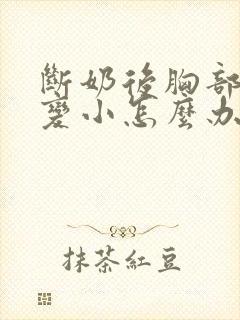 斷奶後胸部
變小怎麼办
抹茶紅豆